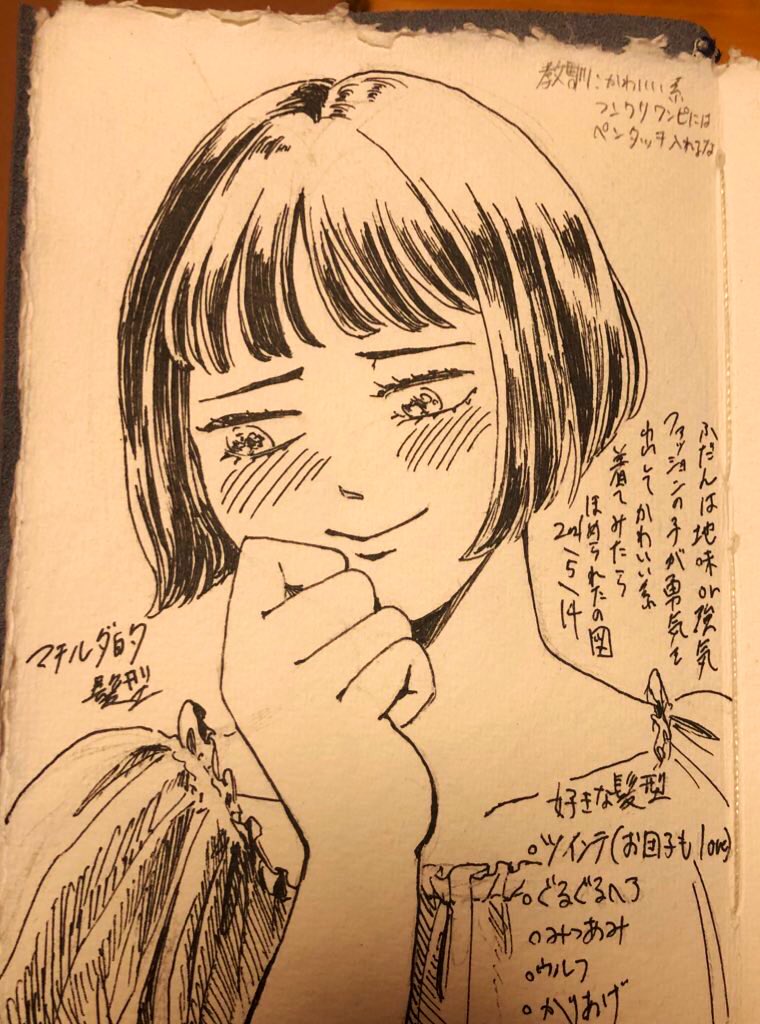 教訓:かわいい系
フンワリワンピには
ペンタッチ入れるな
ふだんは地味or強気
ファッションの子が勇気を
出してかわいい系
着てみたら
ほめられたの図
2021/5/14
マチルダ的
髪型
好きな髪型
○ツインテ(お団子もlove)
○ぐるぐるヘア
○みつあみ
○ウルフ
○かりあげ